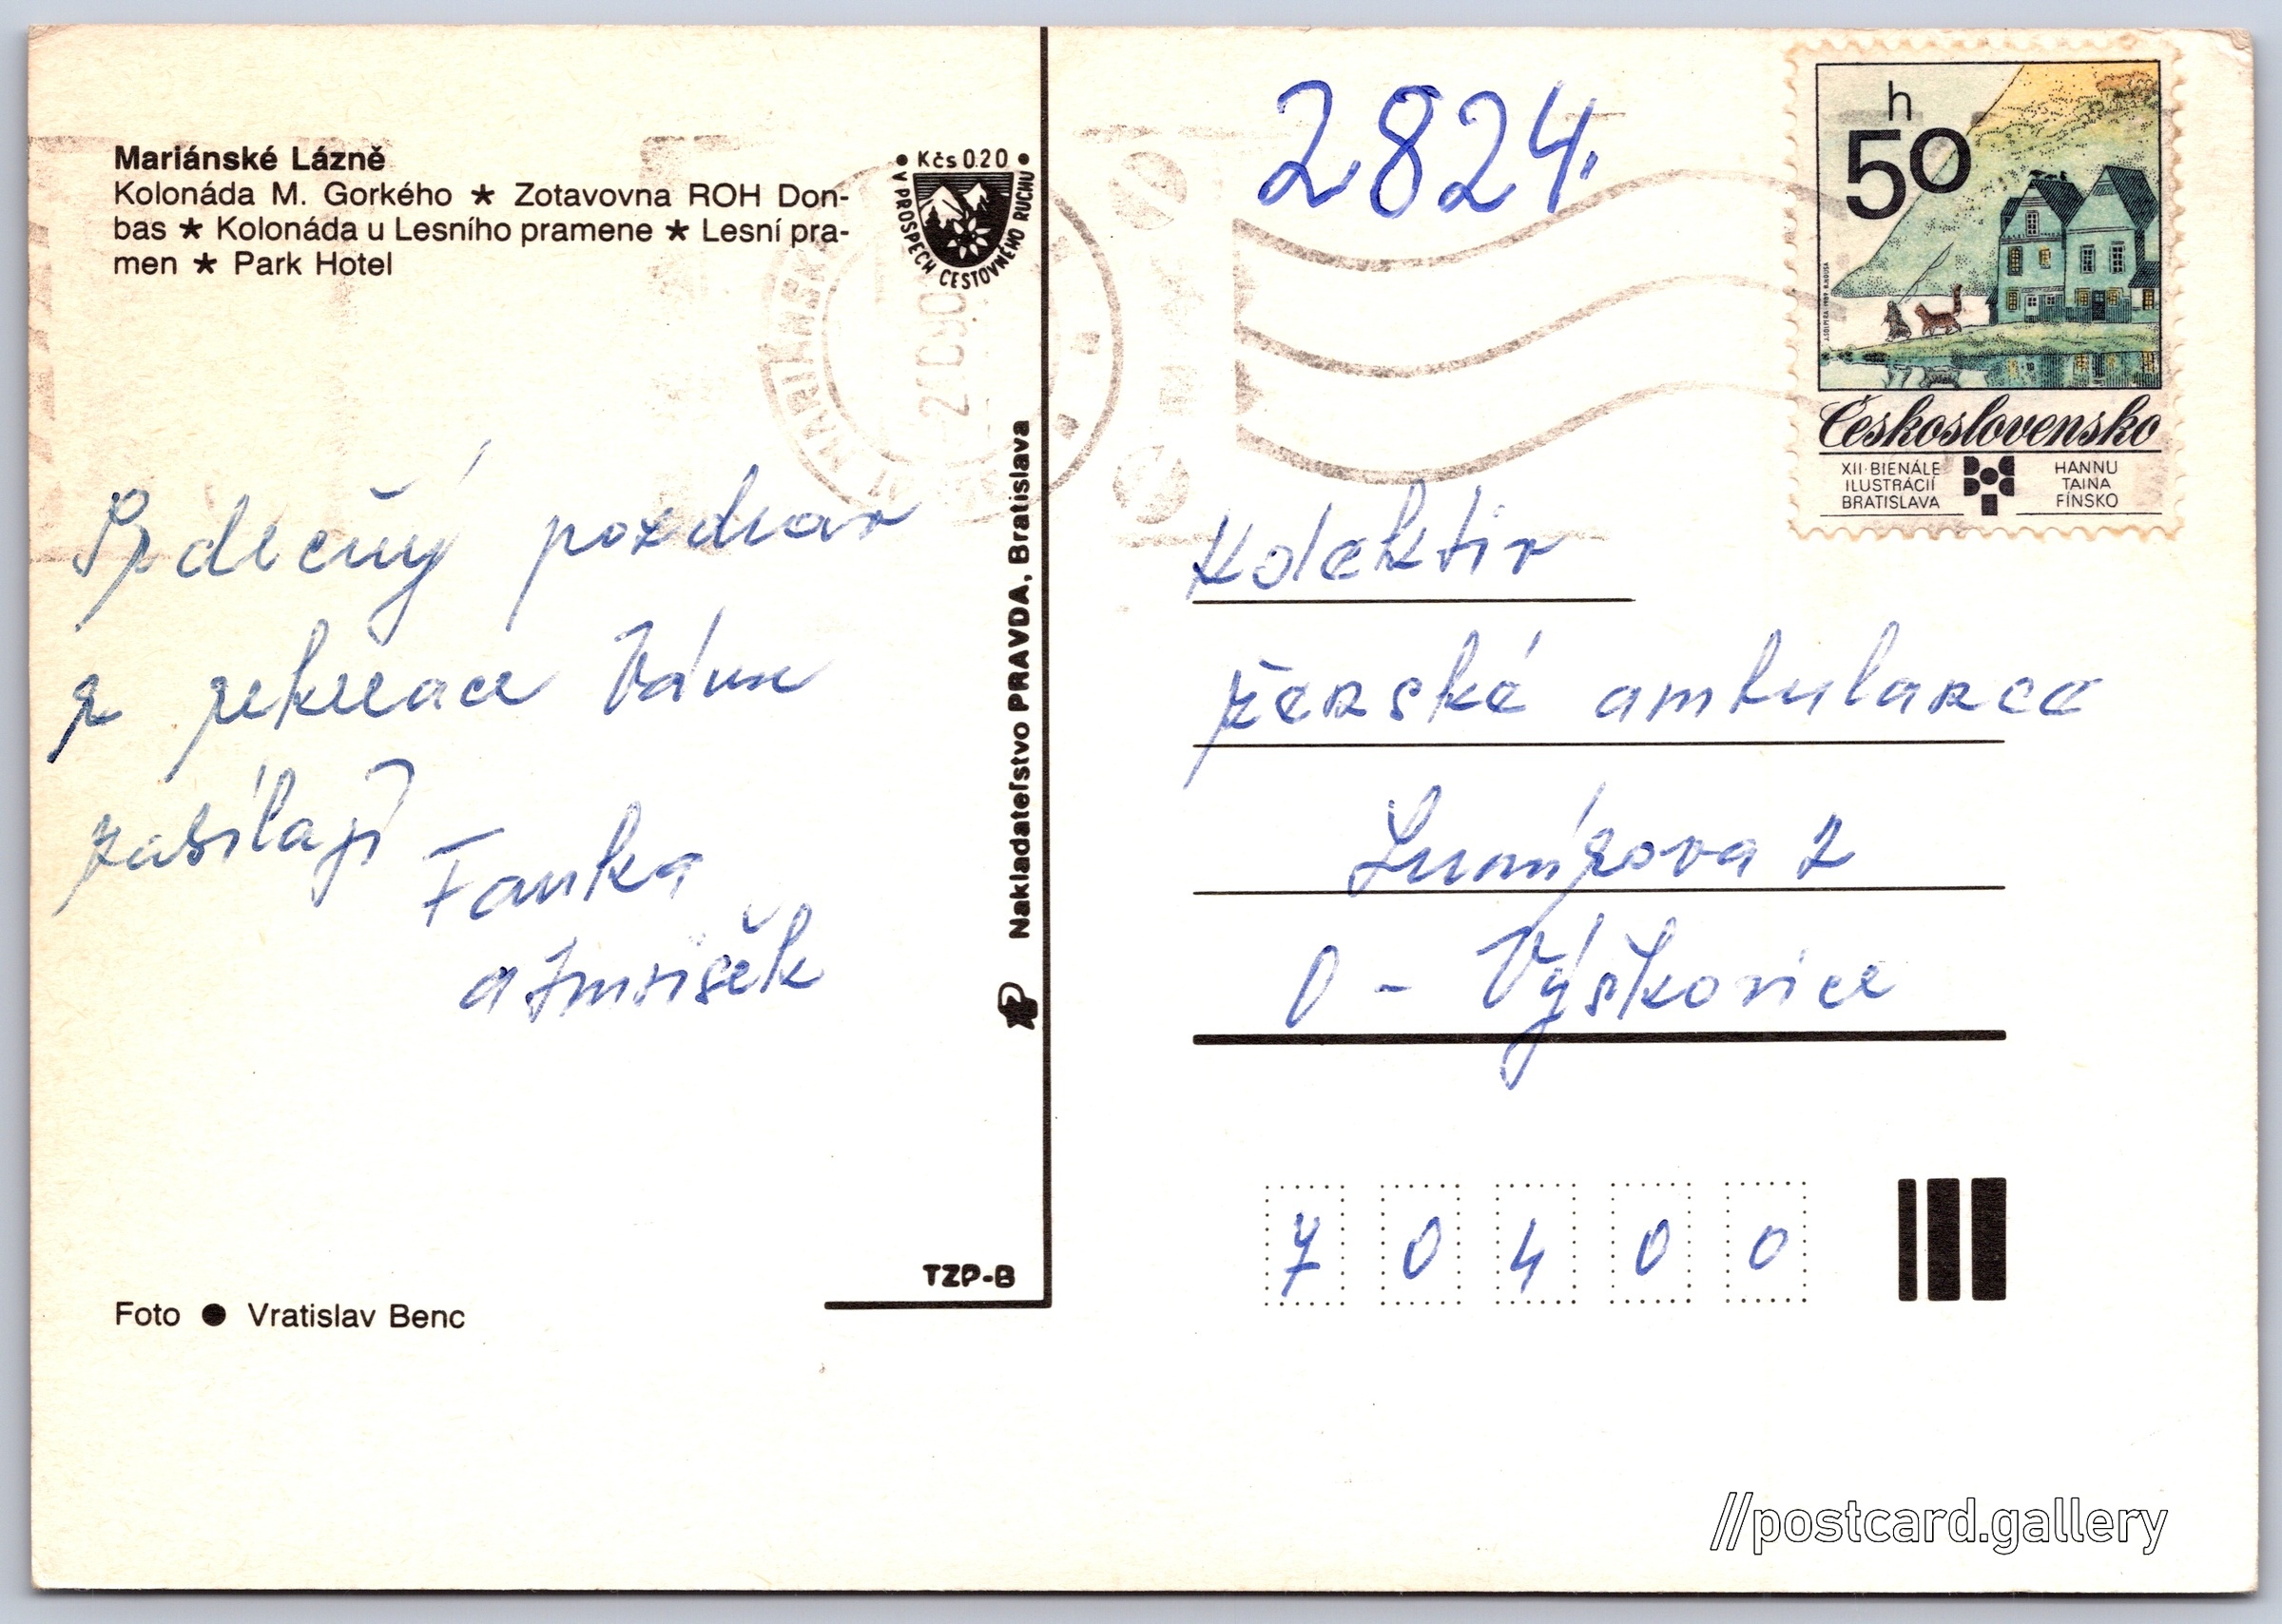 Mariánské Lázně
Kolonáda M. Gorkého ★ Zotavovna ROH Don-
bas ★ Kolonáda u Lesního pramene ★ Lesní pra-
men ★ Park Hotel
• Kčs 0.20 •
V PROSPĚCH CESTOVNÉHO RUCHU
Srdečný pozdrav
z rekreace Vám
zasílají
Fanka
a
Foto ● Vratislav Benc
TZP-B
Nakladateľstvo PRAVDA, Bratislava
2824.
h
50
Československo
XII·BIENÁLE
ILUSTRÁCIÍ
BRATISLAVA
HANNU
TAINA
FÍNSKO
Kolektiv
ženské ambulance
Lumírova 2
O - Výškovice
70400
//postcard.gallery